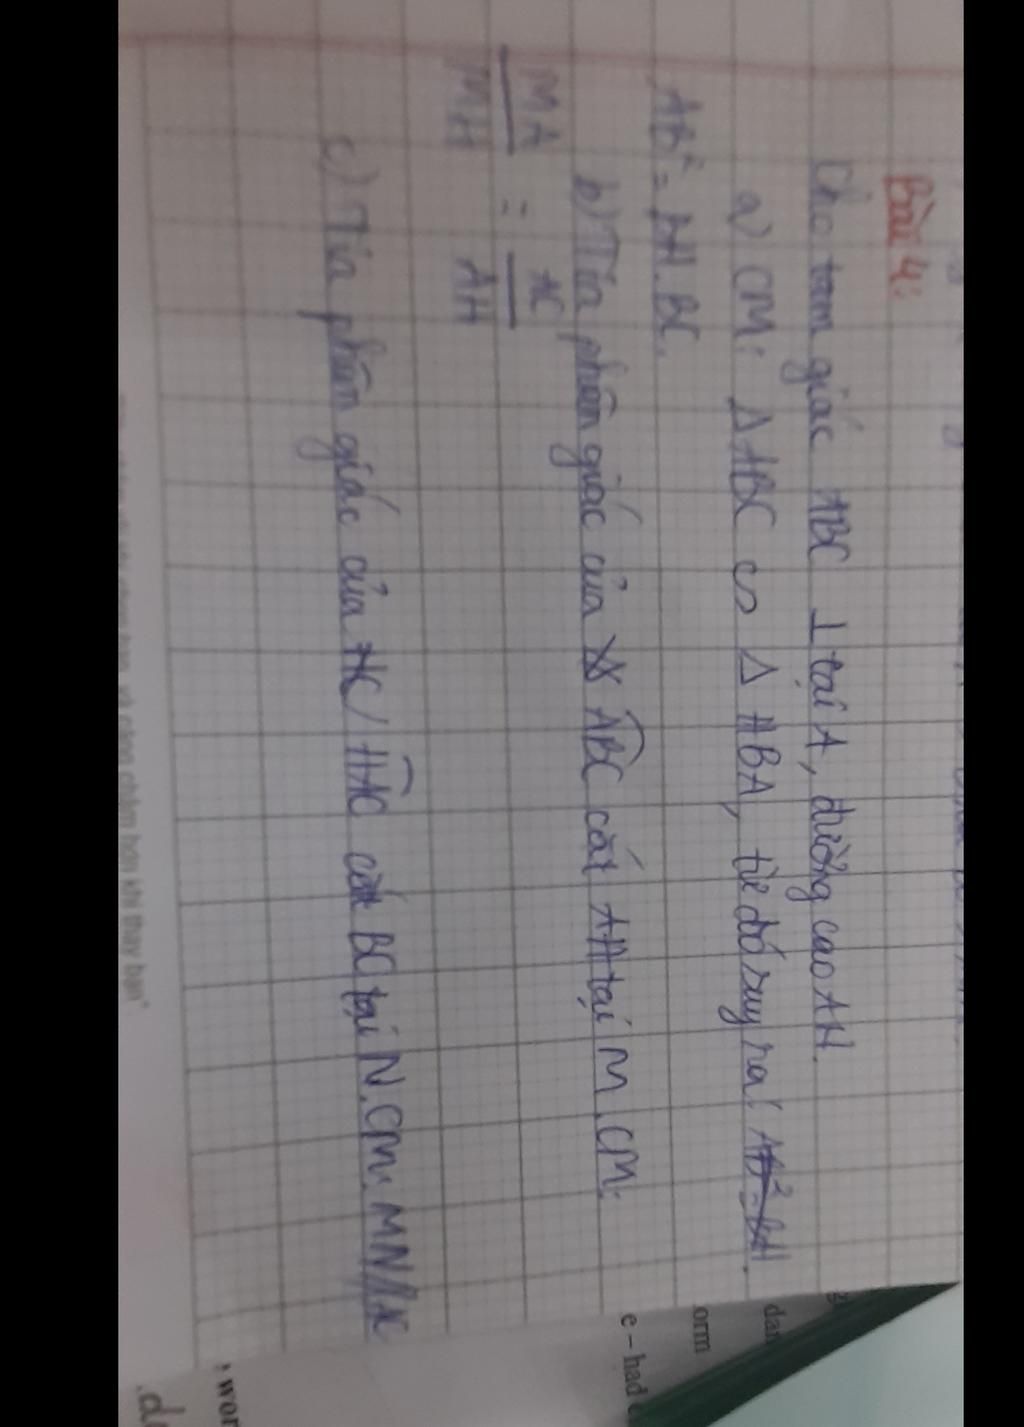 Bài 4:
Cho tam giác ABC ⊥ tại A, đường cao AH.
a) CM: Δ ABC ∽ Δ HBA, từ đó suy ra:
AB² = BH.BC.
b) Tia phân giác của ABC cắt AH tại M. CM:
MA/MH = AC/AH
c) Tia phân giác của HC/ HAC cắt BC tại N. CM: MN//AC
dan
orm
e – had
wor